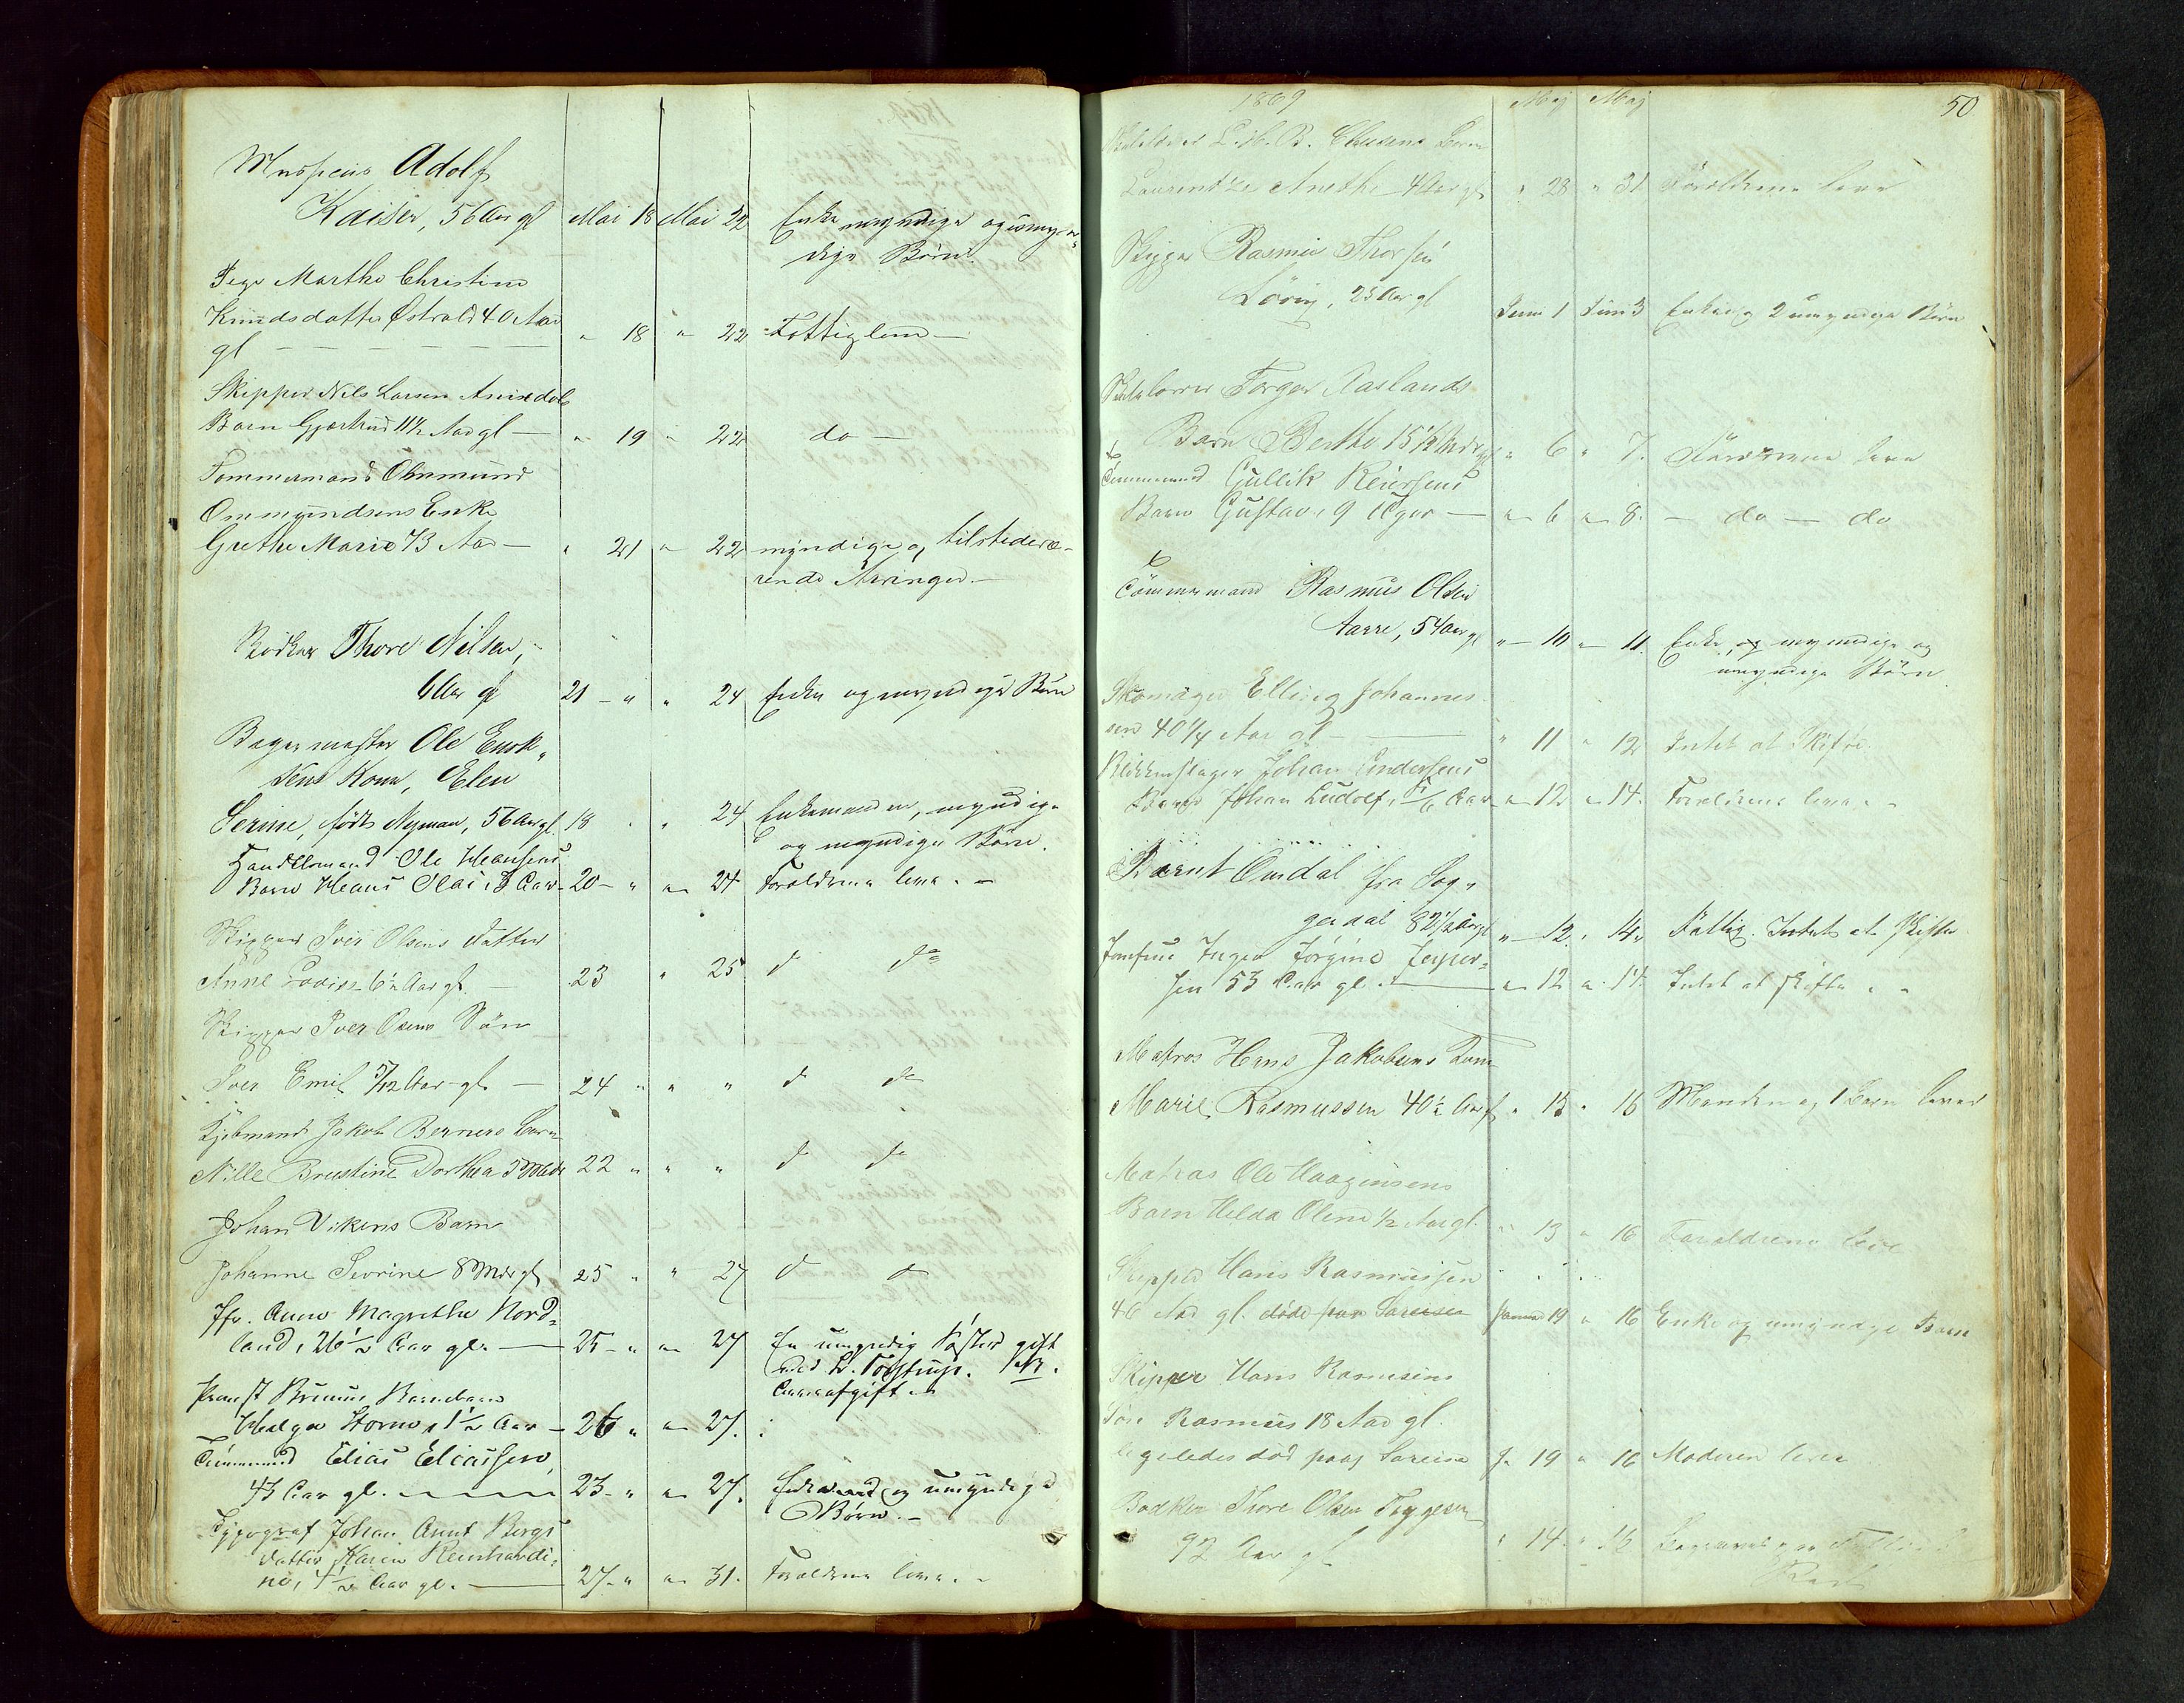 Musicus Adolf
Kaiser, 56 Aar gl Mai 18 Mai 22 Enke myndige og umyn-
dige Børn.
Pige Marthe Christine
Knudsdatter Østrold 40 Aar
gl — " 18 " 22 Fattiglem —
Skipper Nils Larsen
Barn Gjertrud 11½ Aar gl — " 19 " 22 do —
Tømmermand Aamund
Ommundsens Enke
Grethe Marie 73 Aar — " 21 " 22 myndige og tilstedevæ-
rende Arvinger. —
Bødker Thore Nilsen,
Aar gl 21 — " " 24 Enke og myndige Børn
Bagermester Ole Enok-
sens Kone, Elen
Serine, født Nyman, 56 Aar gl. 18 " " 24 Enkemanden, myndige
og myndige Børn.
Handelsmand Ole Hansens
Barn Hans Olai, 3 Aar — 20 — " " 24 Forældrene leve. —
Skipper Iver Olsens Datter
Anne Lovise 6½ Aar gl. — 23 " 25 d do
Skipper Iver Olsens Søn
Iver Emil 5/12 Aar gl — 24 " " " d do
Kjøbmand Jakob Berners Barn
Nille Birestine Dorthea 5 Mdr 22 " " " d do
Johan Vikens Barn
Johanne Severine 8 Mdr gl 25 " " 27 d d
Jfr. Anne Magrethe Nord-
land, 26½ Aar gl. — 25 — " " 27 En umyndig Søster gift
med L. Tostrup.
Arveafgift
Provst Bruuns Barnebarn
Helga Horne, 1½ Aar — 26 " " 27.
Tømmermand Elias Eliassen,
43 Aar gl. — 23 — " " 27. Enke og umyndige
Børn. —
Typograf Johan Arnt Bergs
Datter Karen Reinhardi-
ne, 4½ Aar gl. — 27 — " " 31. Forældrene leve. —
1869 Maj Maj 50
L. H. B. Clausens Barn
Laurentze Anethe 4 Aar gl " 28 " 31 Forældrene leve
Skipper Rasmus Thorsen
Løvig, 25 Aar gl Juni 1 Juni 3 Enke og 2 umyndige Børn
Torger Aaslands
Barn Berthe 15½ Mdr gl " 6 " 7. Forældrene leve
Tømmermand Gullik Reiersens
Barn Gustav, 9 Uger — " 6 " 8. — do — do
Tømmermand Rasmus Olsen
Aarre, 54 Aar gl " — 10 " — 11. Enke, og myndige og
umyndige Børn
Skomager Elling Johannes-
sen 40¼ Aar gl — " 11 " 12 Intet at skifte.
Blikkenslager Johan Endersens
Barn Johan Ludolf, 5/6 Aar — " 12 " 14. Forældrene leve. —
Bernt Omdal fra Sog-
gendal 82½ Aar gl " — 12. " 14. Fattig. Intet at skifte
Jomfrue Inger Jørgine Jesper-
sen 53 Aar gl. — " 12 " 14. Intet at skifte. —
Matros Hans Jakobsens Kone
Marie Rasmussen 40½ Aar gl " 13 " 16 Manden og 1 Barn lever
Matros Ole Haagensens
Barn Helda Oline ½ Aar gl. " 13 " 16 Forældrene leve
Skipper Hans Rasmussen
46 Aar gl. døde paa Januar 19 " 16 Enke og umyndige Børn
Skipper Hans Rasmussens
Søn Rasmus 18 Aar gl.
ligeledes død paa J. 19 " 16 Moderen lever
Bødker Thore Olsen Tryggesen
92 Aar gl " 14. " 16